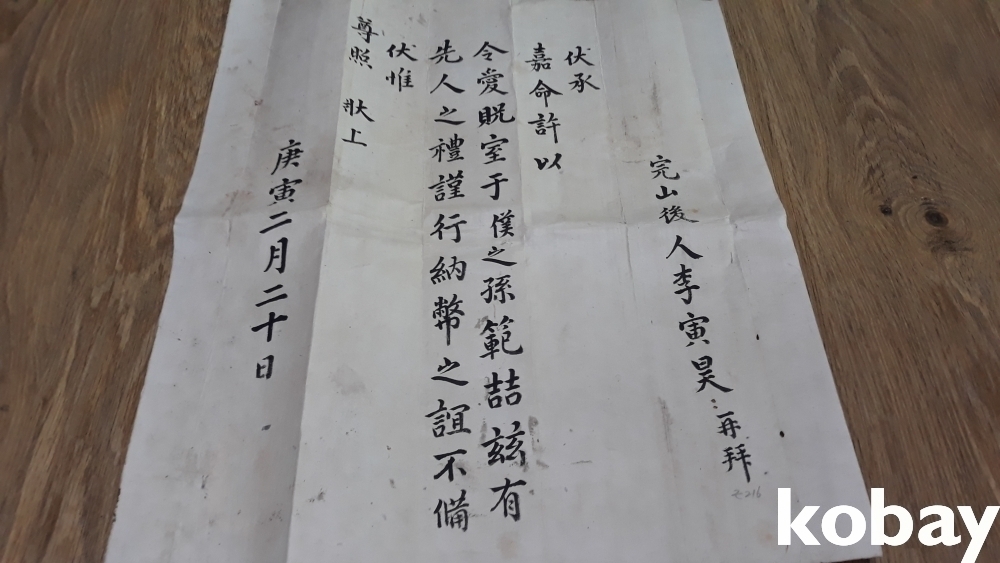 完山後人李寅昊再拜
伏承
嘉命許以
令愛貺室于僕之孫範喆玆有
先人之禮謹行納幣之誼不備
伏惟
尊照 狀上
庚寅二月二十日
kobay